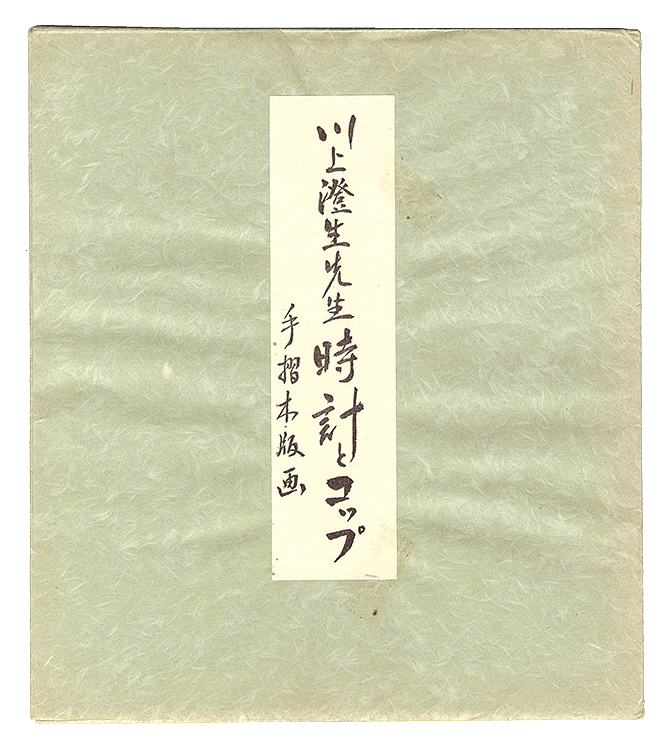 川上澄生先生時計とコップ
手摺木版画